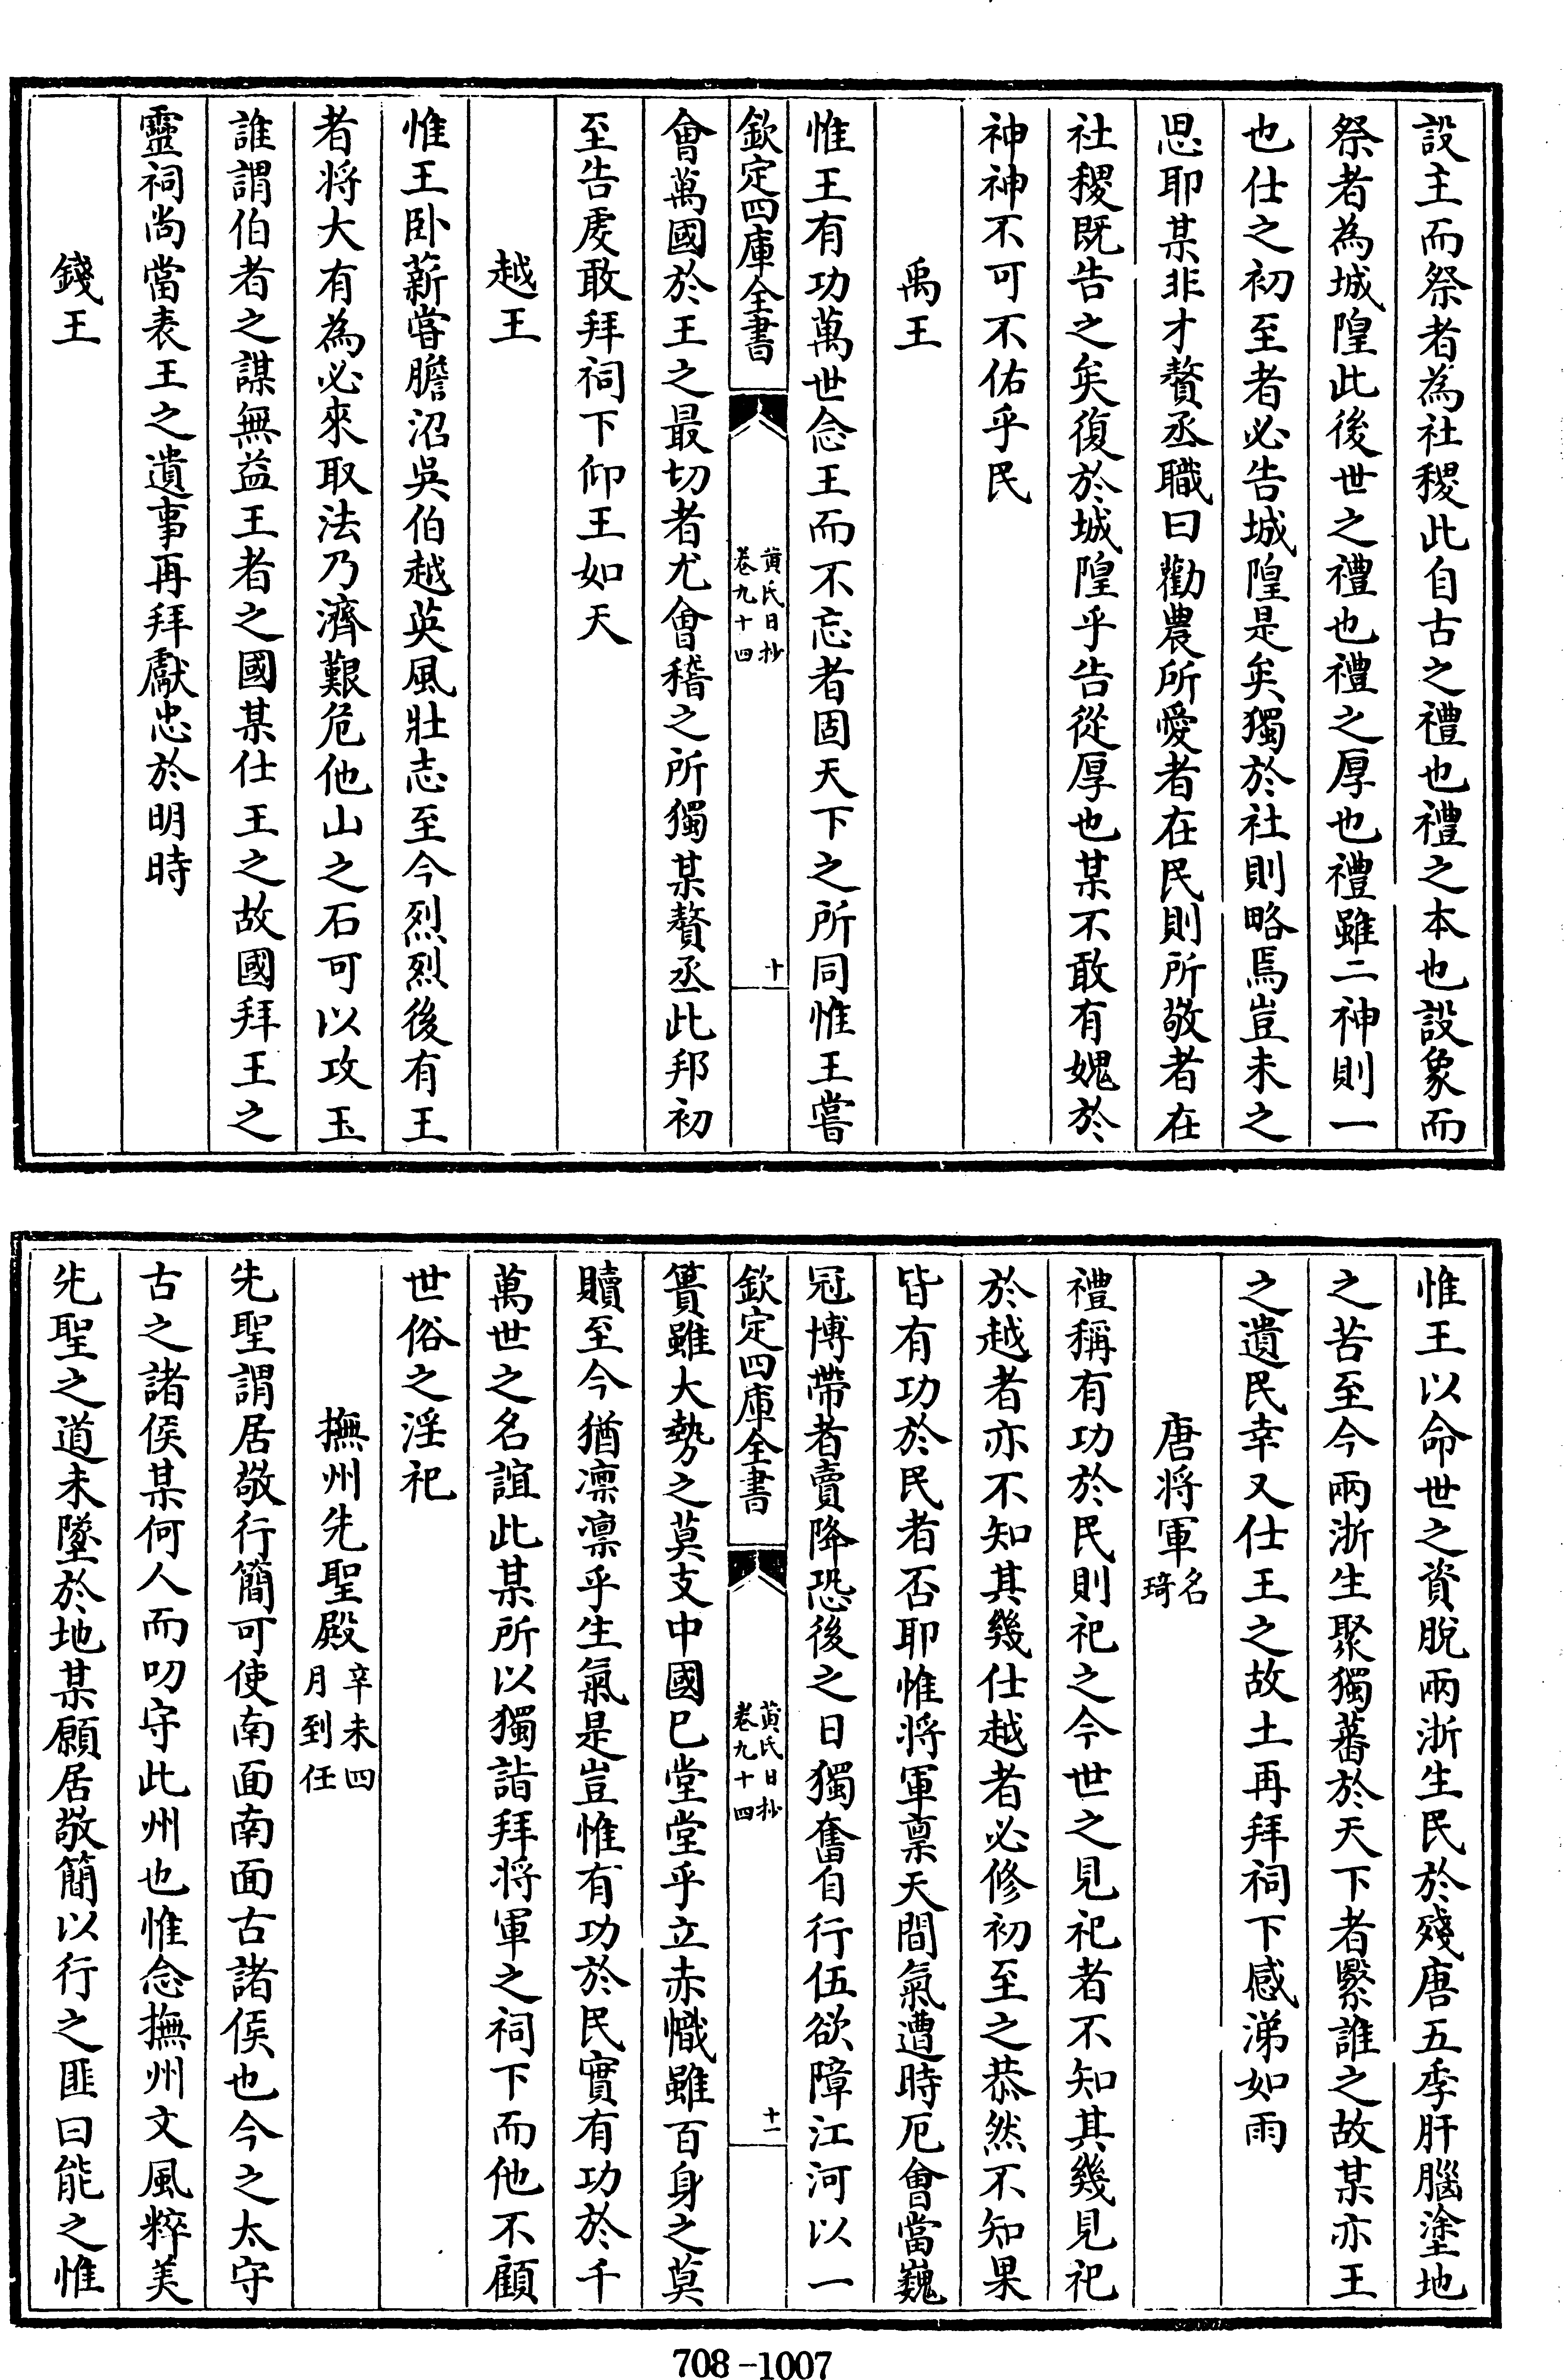 設主而祭者為社稷此自古之禮也禮之本也設象而
祭者為城隍此後世之禮也禮之厚也禮雖二神則一
也仕之初至者必告城隍是矣獨於社則略焉豈未之
思耶某非才贅丞職曰勸農所愛者在民則所敬者在
社稷既告之矣復於城隍乎告從厚也某不敢有媿於
神神不可不佑乎民
禹王
惟王有功萬世念王而不忘者固天下之所同惟王嘗
欽定四庫全書
黄氏日抄
卷九十四
十
會萬國於王之最切者尤會稽之所獨某贅丞此邦初
至告䖍敢拜祠下仰王如天
越王
惟王卧薪嘗膽沼吳伯越英風壯志至今烈烈後有王
者將大有為必來取法乃濟艱危他山之石可以攻玉
誰謂伯者之謀無益王者之國某仕王之故國拜王之
靈祠尚當表王之遺事再拜獻忠於明時
錢王
惟王以命世之資脫兩浙生民於殘唐五季肝腦塗地
之苦至今兩浙生聚獨蕃於天下者緊誰之故某亦王
之遺民幸又仕王之故土再拜祠下感涕如雨
唐將軍名琦
禮稱有功於民則祀之今世之見祀者不知其幾見祀
於越者亦不知其幾仕越者必修初至之恭然不知果
皆有功於民者否耶惟將軍稟天間氣遭時厄會當巍
冠博帶者賣降恐後之日獨奮自行伍欲障江河以一
欽定四庫全書
黄氏日抄
卷九十四
十一
簣雖大勢之莫支中國已堂堂乎立赤幟雖百身之莫
贖至今猶凛凛乎生氣是豈惟有功於民實有功於千
萬世之名誼此某所以獨詣拜將軍之祠下而他不顧
世俗之淫祀
撫州先聖殿辛未四月到任
先聖謂居敬行簡可使南面南面古諸侯也今之太守
古之諸侯某何人而叨守此州也惟念撫州文風粹美
先聖之道未墜於地某願居敬簡以行之匪曰能之惟
708-1007